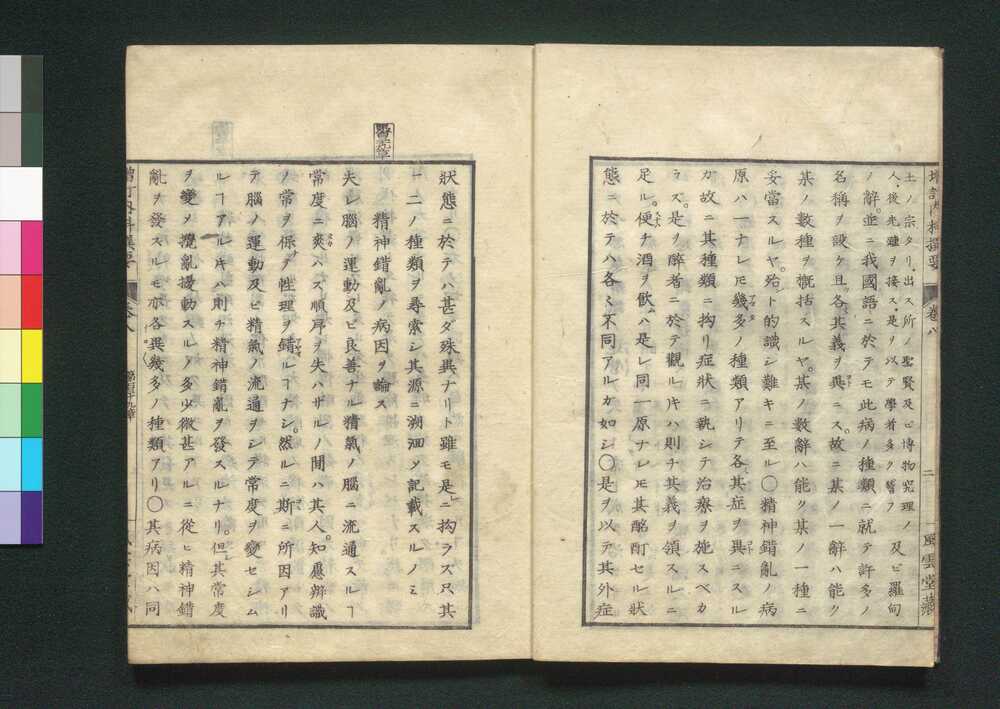 増訂内科撰要 卷八 二 風雲堂藏
土ノ宗タリ出ス所ノ聖賢及ヒ博物究理ノ
人後先踵ヲ接ス是ヲ以テ學者多ク誓フ 及ビ羅甸
ノ辭並ニ我國語ニ於テモ此病ノ種類ニ就テ許多ノ
名稱ヲ設ケ且各其義ヲ異ニス。故ニ某ノ一辭ハ能ク
某ノ數種ヲ概括スルヤ。某ノ數辭ハ能ク某ノ一種ニ
妥當スルヤ。殆ト的識シ難キニ至ル〇精神錯亂ノ病
原ハ一ナレㇳモ幾多ノ種類アリテ各其症ヲ異ニスル
カ故ニ其種類ニ拘リ症狀ニ執シテ治療ヲ施スベカ
ラズ。是ヲ醉者ニ於テ觀ルㇳキハ則チ其義ヲ領スルニ
足ル。便ナ酒ヲ飲ハ是レ同一原ナレㇳモ其酩酊セル狀
態ニ於テハ各々不同アルカ如シ〇是ヲ以テ其外症
狀態ニ於テハ甚ダ殊異ナリト雖モ是ニ拘ラズ只其
一二ノ種類ヲ尋索シ其源ニ溯洄ソ記載スルノミ
精神錯亂ノ病因ヲ論ス
夫レ腦ノ運動及ビ良善ナル精氣ノ腦ニ流通スルヿ
常度ニ爽ハズ順序ヲ失ハザルノ間ハ其人。知慮辨識
ノ常ヲ保チ性理ヲ錯ルヿナシ。然ルニ斯ニ所因アリ
テ腦ノ運動及ビ精氣ノ流通ヲシテ常度ヲ變セシム
ルヿアルㇳキハ則チ精神錯亂ヲ發スルナリ。但其常度
ヲ變メ攪亂擾動スルノ多少微甚アルニ從ヒ精神錯
亂ヲ發スルモ亦各異幾多ノ種類アリ〇其病因ハ同
増訂内科撰要 卷八